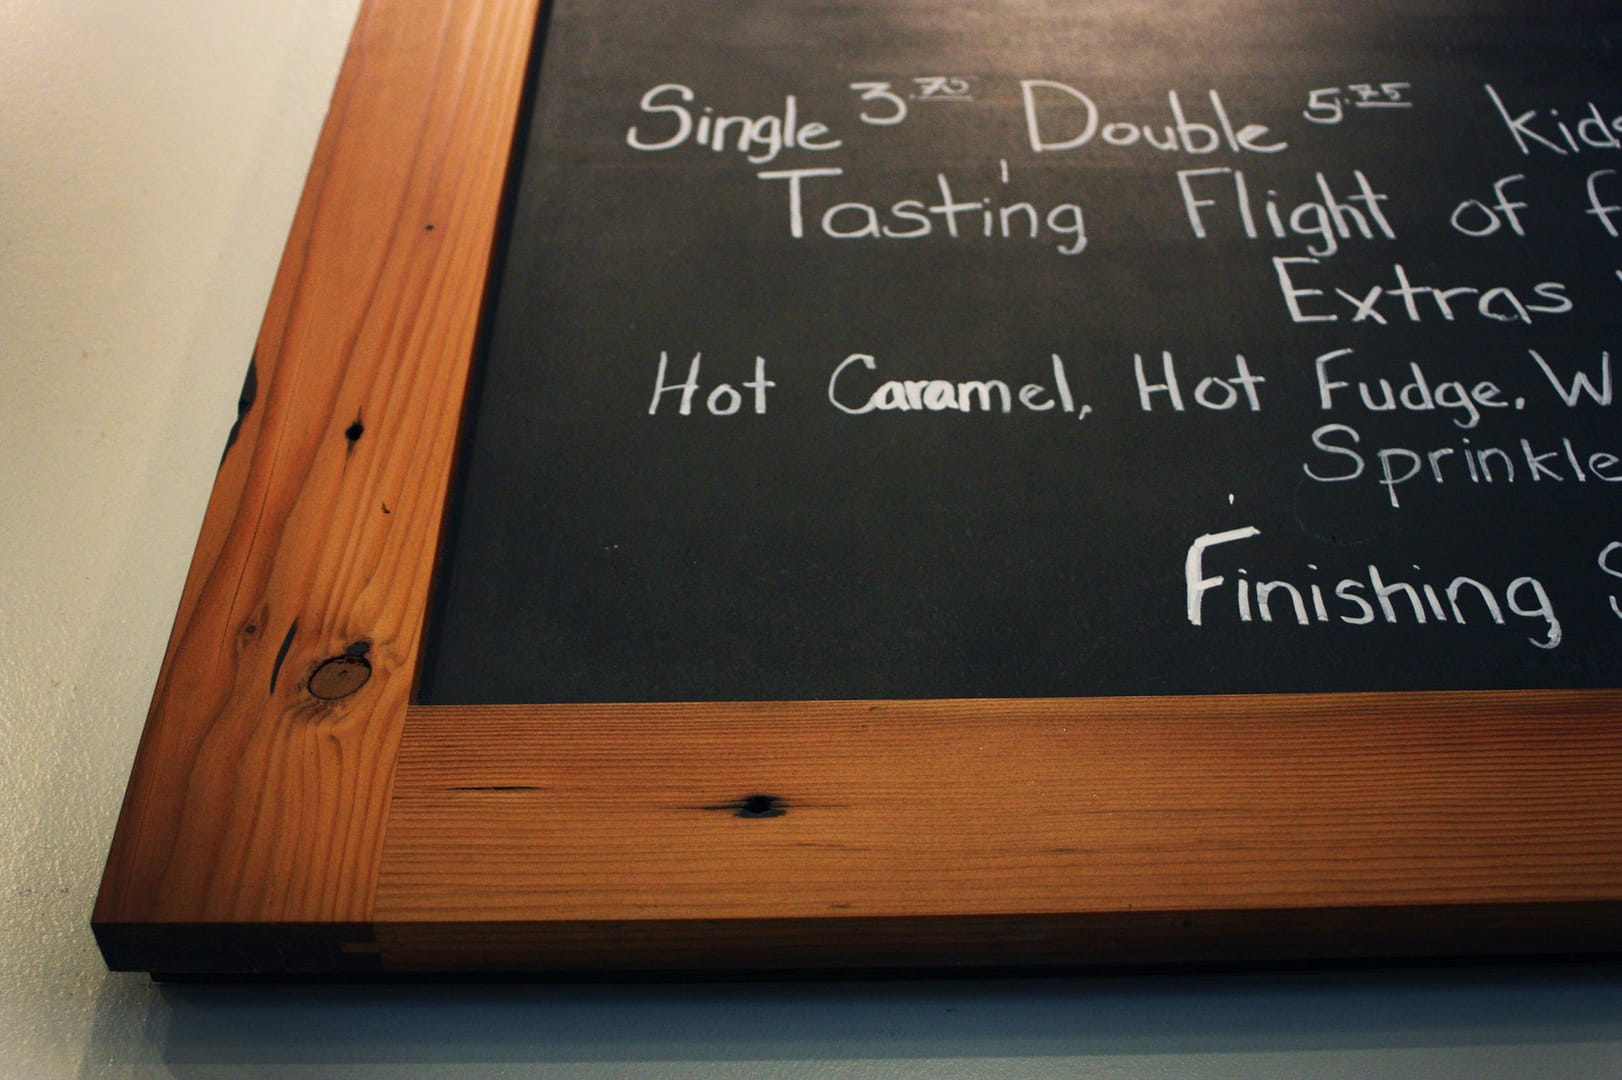 Single 3.75 Double 5.75 Kids
Tasting Flight of f
Extras
Hot Caramel, Hot Fudge, W
Sprinkle
Finishing S